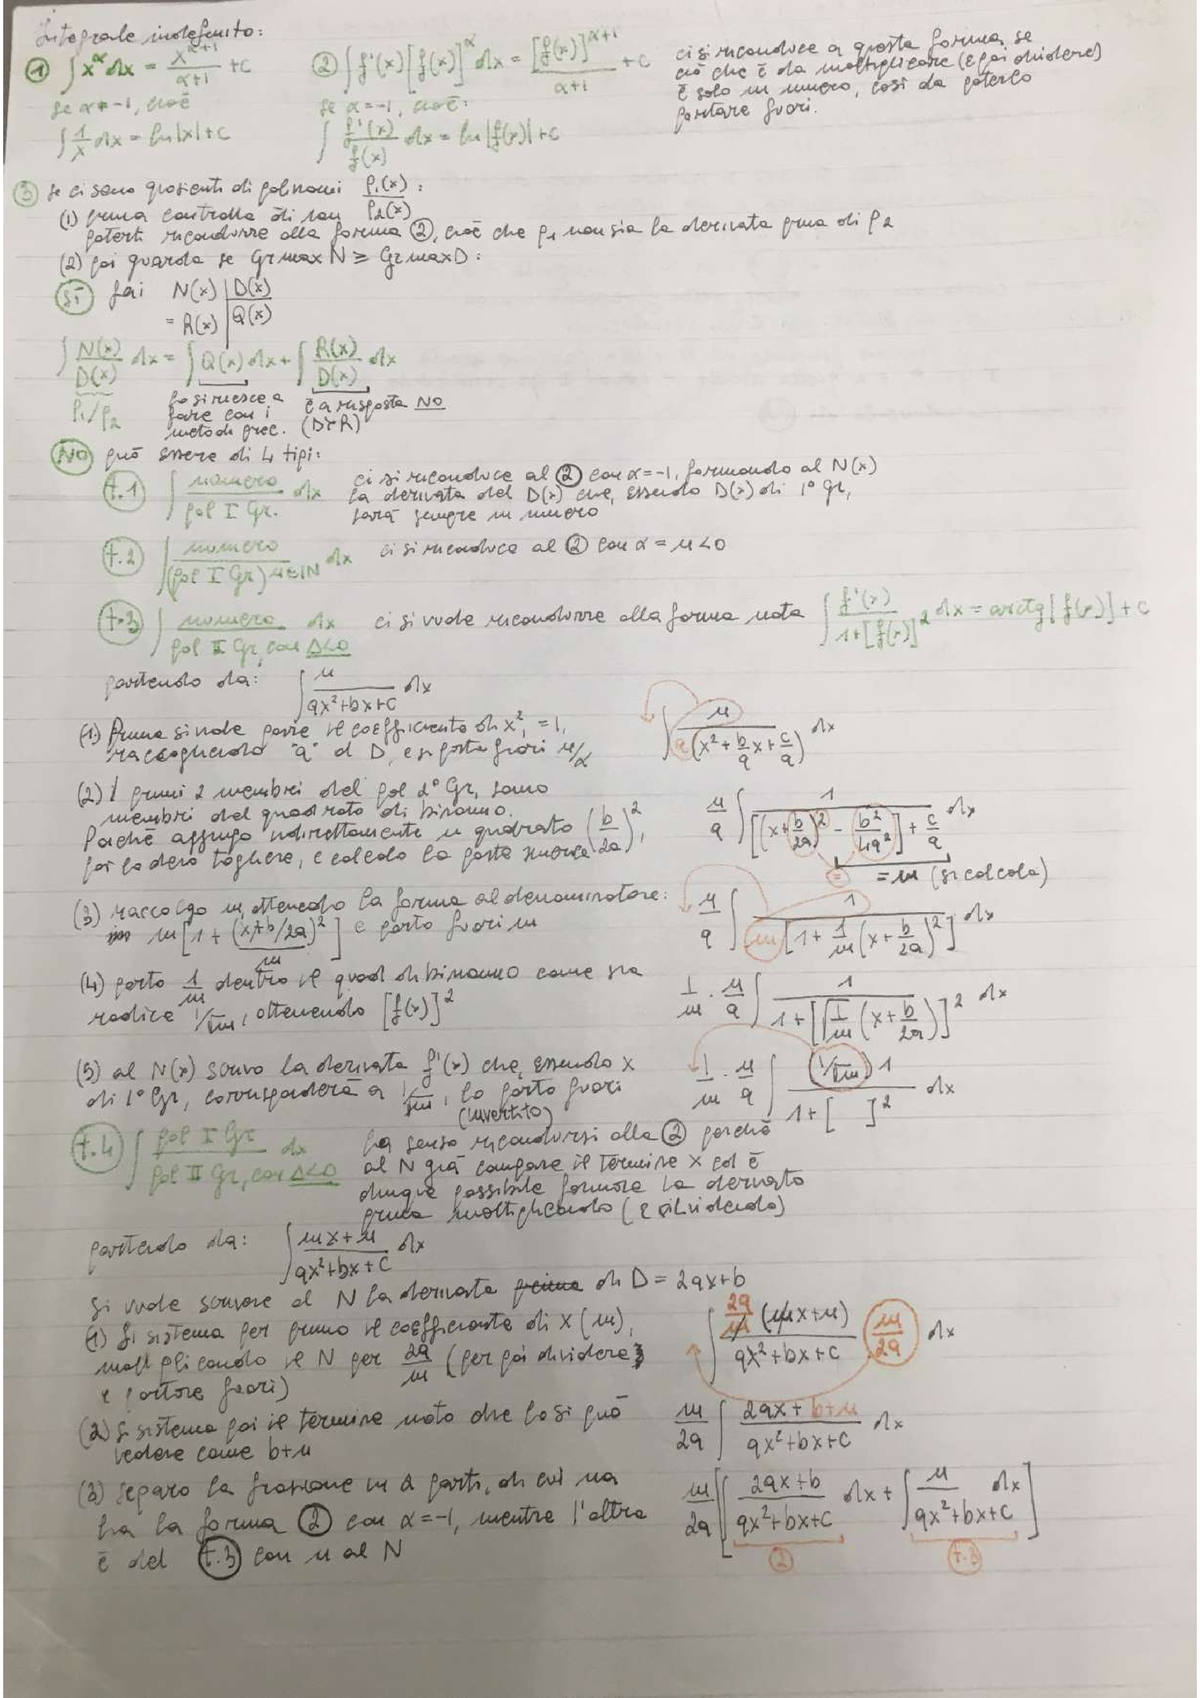 Integrale indefinito:
① ∫ x^α dx = x^(α+1)/(α+1) + c
② ∫ f'(x) [f(x)]^α dx = [f(x)]^(α+1)/(α+1) + c
ci si riconduce a questa forma se
ciò che è da moltiplicare (e poi dividere)
è solo un numero, così da poterlo
portare fuori.
se α=-1, cioè
∫ 1/x dx = ln|x|+c
se α=-1, cioè:
∫ f'(x)/f(x) dx = ln|f(x)|+c
③ se ci sono quozienti di polinomi P₁(x)/P₂(x) :
(1) prima controlla di non
poterti ricondurre alla forma ②, cioè che P₁ non sia la derivata prima di P₂
(2) poi guarda se Gr max N ≥ Gr max D :
SÌ fai N(x) | D(x)
= R(x) | Q(x)
∫ N(x)/D(x) dx = ∫ Q(x) dx + ∫ R(x)/D(x) dx
P₁/P₂
lo si riesce a
fare con i
metodi prec.
è la risposta NO
(D>R)
NO può essere di 4 tipi:
t.1 ∫ numero/pol I Gr. dx
ci si riconduce al ② con α=-1, formando al N(x)
la derivata del D(x) che, essendo D(x) di 1° Gr,
sarà sempre un numero
t.2 ∫ numero/(pol I Gr)^n∈ℕ dx ci si riconduce al ② con α = n<0
t.3 ∫ numero/pol II Gr, con Δ<0 dx ci si vuole ricondurre alla forma nota ∫ f'(x)/(1+[f(x)]²) dx = arctg[f(x)]+c
partendo da: ∫ n/(ax²+bx+c) dx
(1) Prima si vuole porre il coefficiente di x² = 1,
raccogliendo "a" al D, e si porta fuori n/a
∫ n/(a(x²+b/a x+c/a)) dx
(2) I primi 2 membri del pol 2° Gr, sono
membri del quadrato di binomio.
Poiché aggiungo indirettamente un quadrato (b/2a)²,
poi lo devo togliere, e calcolo la parte numerica
n/a ∫ 1/([(x+b/2a)² - b²/4a²] + c/a) dx
= m (si calcola)
(3) raccolgo m, ottenendo la forma al denominatore:
m[1 + (x+b/2a)²/m] e porto fuori m
n/a ∫ 1/(m[1+1/m(x+b/2a)²]) dx
(4) porto 1/m dentro il quad di binomio come sua
radice 1/√m, ottenendo [f(x)]²
1/m · n/a ∫ 1/(1+[√(1/m)(x+b/2a)]²) dx
(5) al N(x) scrivo la derivata f'(x) che, essendo x
di 1° Gr, corrisponderà a 1/√m, lo porto fuori
(invertito)
1/m · n/a ∫ (1/√m) 1/(1+[ ]²) dx
t.4 ∫ pol I Gr/pol II Gr, con Δ<0 dx
ha senso ricondursi alla ② perché
al N già compare il termine x ed è
dunque possibile formare la derivata
prima moltiplicando (e dividendo)
partendo da: ∫ mx+n/(ax²+bx+c) dx
Si vuole scrivere al N la derivata prima di D = 2ax+b
(1) Si sistema per primo il coefficiente di x (m),
moltiplicando il N per 2a/m (per poi dividere
e portare fuori)
∫ 2a/m (mx+n)/(ax²+bx+c) m/2a dx
(2) Si sistema poi il termine noto che lo si può
vedere come b+n
m/2a ∫ 2ax+b+n/(ax²+bx+c) dx
(3) separo la frazione in 2 parti, di cui una
ha la forma ② con α=-1, mentre l'altra
è del t.3 con n al N
m/2a [∫ 2ax+b/(ax²+bx+c) dx + ∫ n/(ax²+bx+c) dx]
② t.3